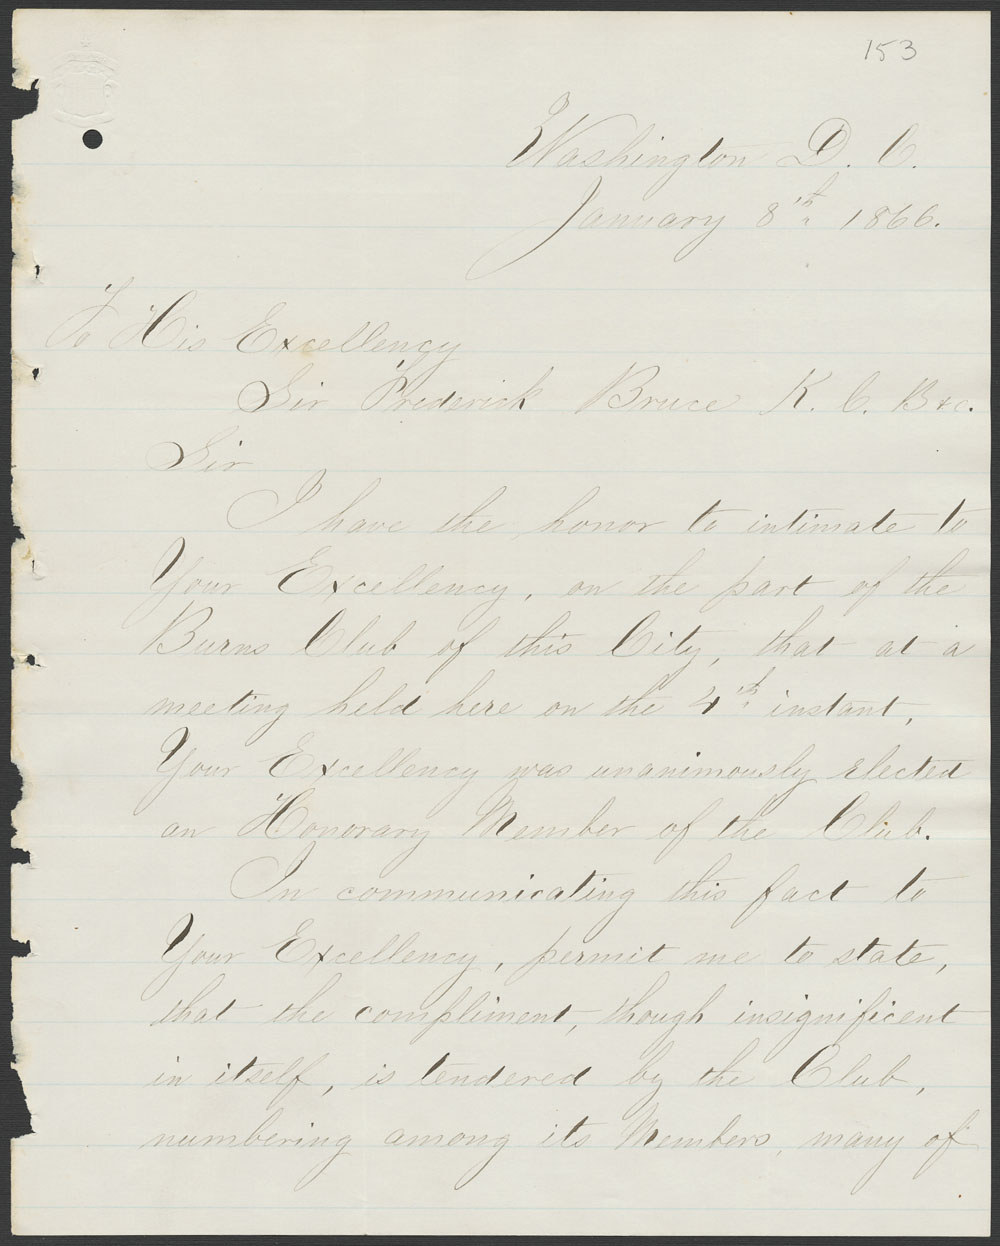 153
Washington D. C.
January 8th 1866.
To His Excellency
Sir Frederick Bruce K. C. B &c.
Sir
I have the honor to intimate to
Your Excellency, on the part of the
Burns Club of this City, that at a
meeting held here on the 4th instant,
Your Excellency was unanimously elected
an Honorary Member of the Club.
In communicating this fact to
Your Excellency, permit me to state,
that the compliment, though insignificent
in itself, is tendered by the Club,
numbering among its Members, many of